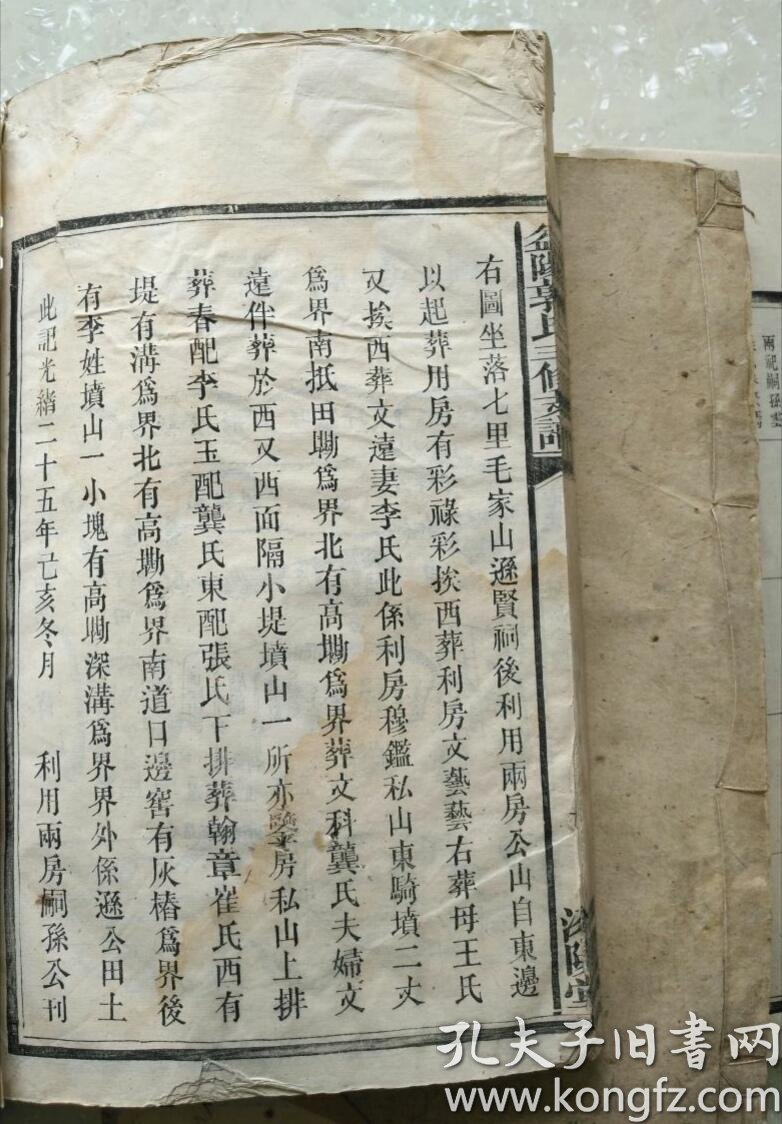 右圖坐落七里毛家山遜賢祠後利用兩房公山自東邊
以起葬用房有彩祿彩挨西葬利房文藝藝右葬母王氏
又挨西葬文遠妻李氏此係利房穆鑑私山東騎墳二丈
爲界南抵田墈爲界北有高墈爲界葬文科龔氏夫婦文
遠件葬於西又西面隔小堤墳山一所亦 房私山上排
葬春配李氏玉配龔氏東配張氏下排葬翰章崔氏西有
堤有溝爲界北有高墈爲界南道口邊窖有灰樁爲界後
有李姓墳山一小塊有高墈深溝爲界界外係遜公田土
此記光緒二十五年己亥冬月 利用兩房嗣孫公刊
益陽郭氏三修支譜
汾陽堂
兩祀嗣孫
孔夫子旧书网
www.kongfz.com